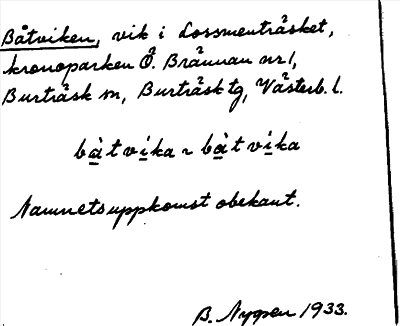 Båtviken, vik i Lossmenträsket,
kronoparken Ö. Brännan nr 1,
Burträsk sn, Burträsk tg, Västerb. l.
bàtvika ~ bàtvika
Namnets uppkomst obekant.
B. Nygren 1933.